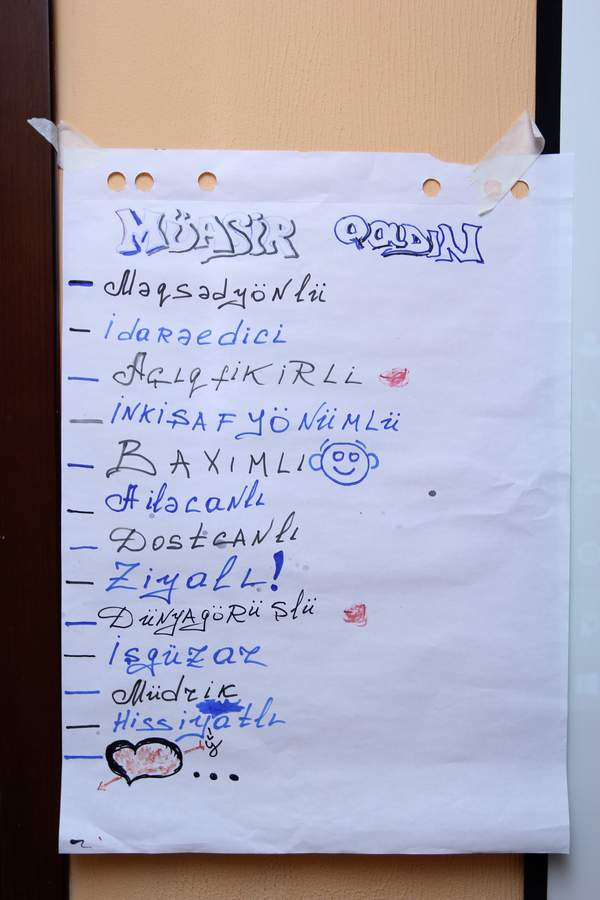 MÜASİR QADIN
Məqsədyönlü
İdarəedici
Açıqfikirli
İNKİŞAFYÖNÜMLÜ
BAXIMLI
Ailəcanlı
Dostcanlı
Ziyalı!
Dünyagörüşlü
İşgüzar
Müdrik
Hissiyatlı
...